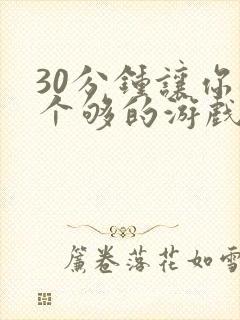 30分鍾讓你
个够的游戏
簾卷落花如雪